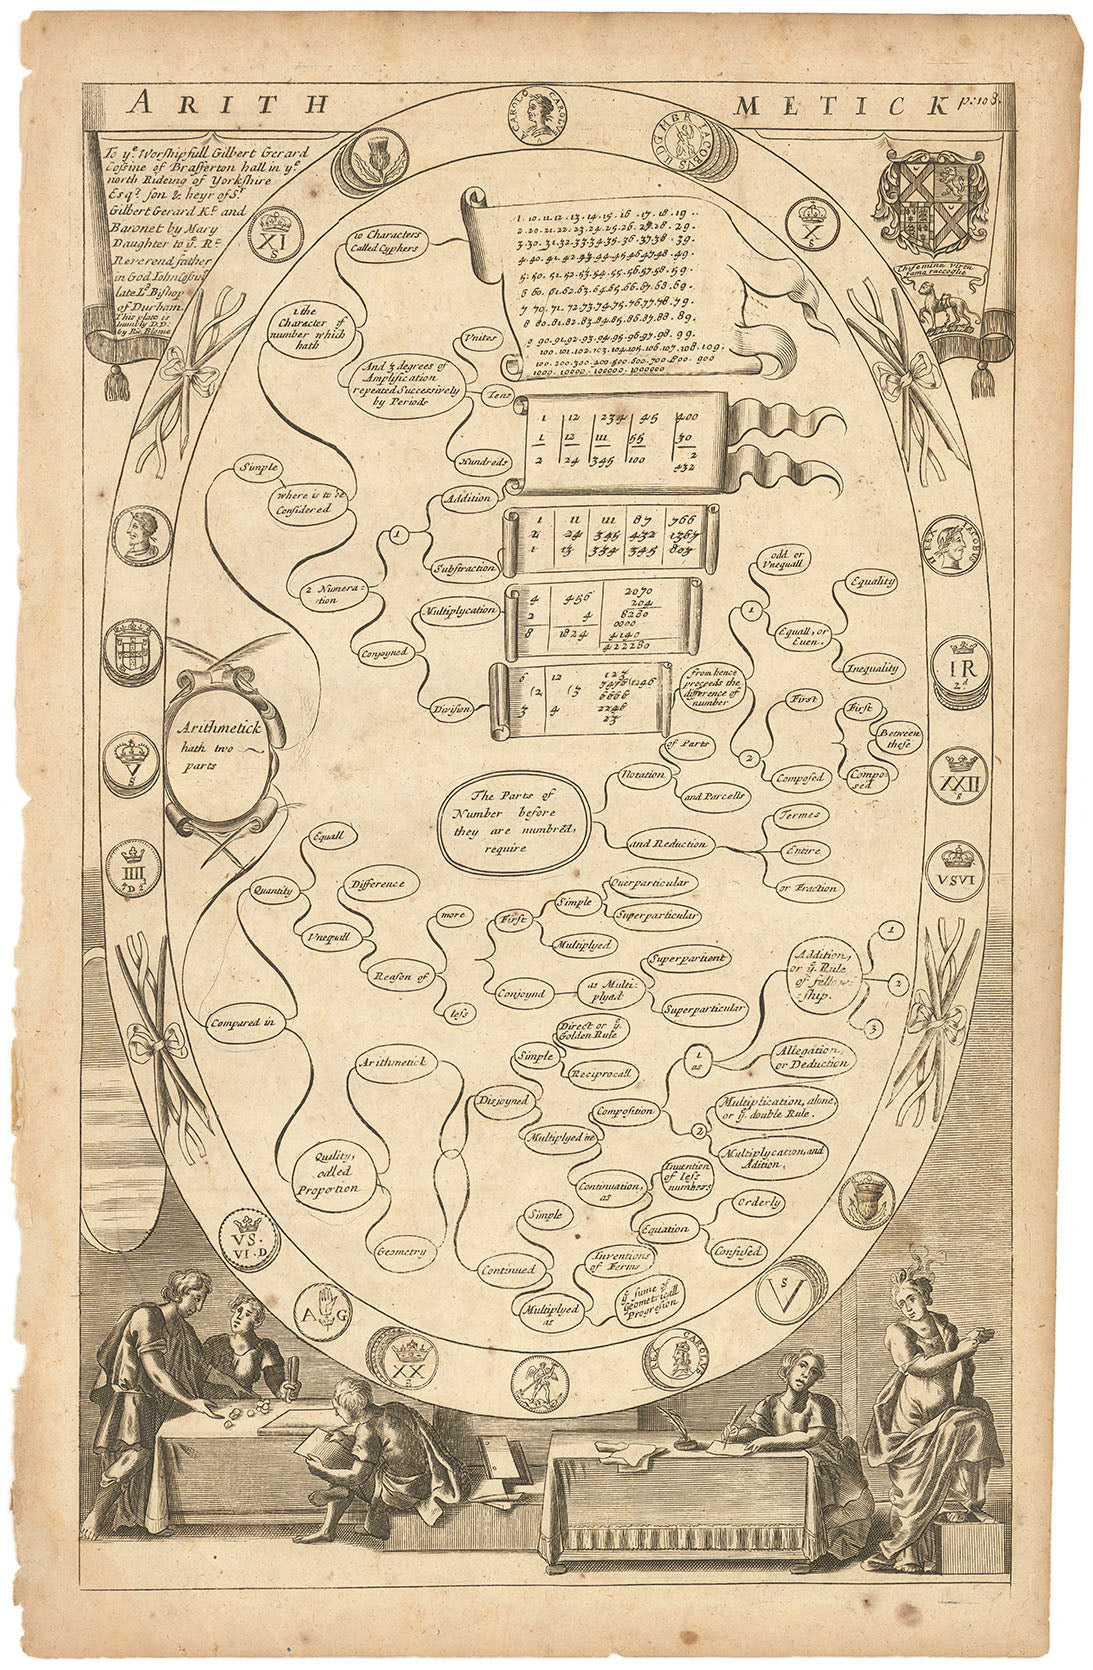 ARITH METICK p: 108.
To yᵉ Worshipfull Gilbert Gerard
Cossine of Brafferton hall in yᵉ
north Rideing of Yorkshire
Esqʳ. son & heyr of Sʳ
Gilbert Gerard Kᵗ and
Baronet by Mary
Daughter to yᵉ Rᵗ
Reverend father
in God Iohn Cossins
late Lᵈ Bishop
of Durham.
This plate is
humbly D.D.
by Ric. Blome
CAROLO CAROLI
IACOBUS
XI
s
X
s
Che femina Virtu
fama raccoglie
10 Characters
Called Cyphers
1. 10. 11. 12. 13. 14. 15. 16. 17. 18. 19.
2. 20. 21. 22. 23. 24. 25. 26. 27. 28. 29.
3. 30. 31. 32. 33. 34. 35. 36. 37. 38. 39.
4. 40. 41. 42. 43. 44. 45. 46. 47. 48. 49.
5. 50. 51. 52. 53. 54. 55. 56. 57. 58. 59.
6 60. 61. 62. 63. 64. 65. 66. 67. 68. 69.
7 70. 71. 72. 73. 74. 75. 76. 77. 78. 79.
8 80. 81. 82. 83. 84. 85. 86. 87. 88. 89.
9 90. 91. 92. 93. 94. 95. 96. 97. 98. 99.
100. 101. 102. 103. 104. 105. 106. 107. 108. 109.
100. 200. 300. 400. 500. 600. 700. 800. 900
1000. 10000. 100000. 1000000
1 the
Character of
number which
hath
And 3 degrees of
Amplification
repeated Successively
by Periods
Unites
Tens
Hundreds
1 12 234 45 400
1 12 111 55 30
2 24 345 100 2
432
Simple
where is to be
Considered
2 Numera-
-tion
1
Addition
Substraction
1 11 111 87 766
2 24 345 432 1367
1 13 334 345 803
Conjoyned
Multiplycation
Division
4 456 2070
2 4 204
8 1824 8280
0000
4140
422280
6 12 123
(2 (3 7478 (1246
3 4 6666
2246
23
from hence
proceeds the
difference of
number
1
odd or
Vnequall
Equall, or
Even.
Equality
Inequality
2
First
Composed
First
Between
these
Compo-
sed
II REX IACOBUS
IR
2ᵈ
XXII
s
VSVI
V
s
IIII
D
Arithmetick
hath two
parts
The Parts of
Number before
they are numbred,
require
Notation
of Parts
and Parcells
and Reduction
Termes
Entire
or Fraction
Compared in
Quantity
Equall
Vnequall
Difference
Reason of
more
less
First
Simple
Overparticular
Superparticular
Multiplyed
Conjoynd
as Multi-
plyed
Superpartient
Superparticular
Addition,
or yᵉ Rule
of fellow-
-ship.
1
2
3
Quility,
called
Proportion
Arithmetick
Geometry
Disjoyned
Simple
Direct or yᵉ
Golden Rule
Reciprocall
Multiplyed in
Composition
1
as
Allegation,
or Deduction
2
Multiplication, alone,
or yᵉ double Rule.
Multiplycation, and
Adition.
Continuation,
as
Invention
of less
numbers
Equation
Orderly
Confused
Continued
Simple
Multiplyed
as
Inventions
of Terms
yᵉ sume of
Geometricall
Progresion
VS.
VI. D
A G
XX
s
REX CAROLVS
V
s